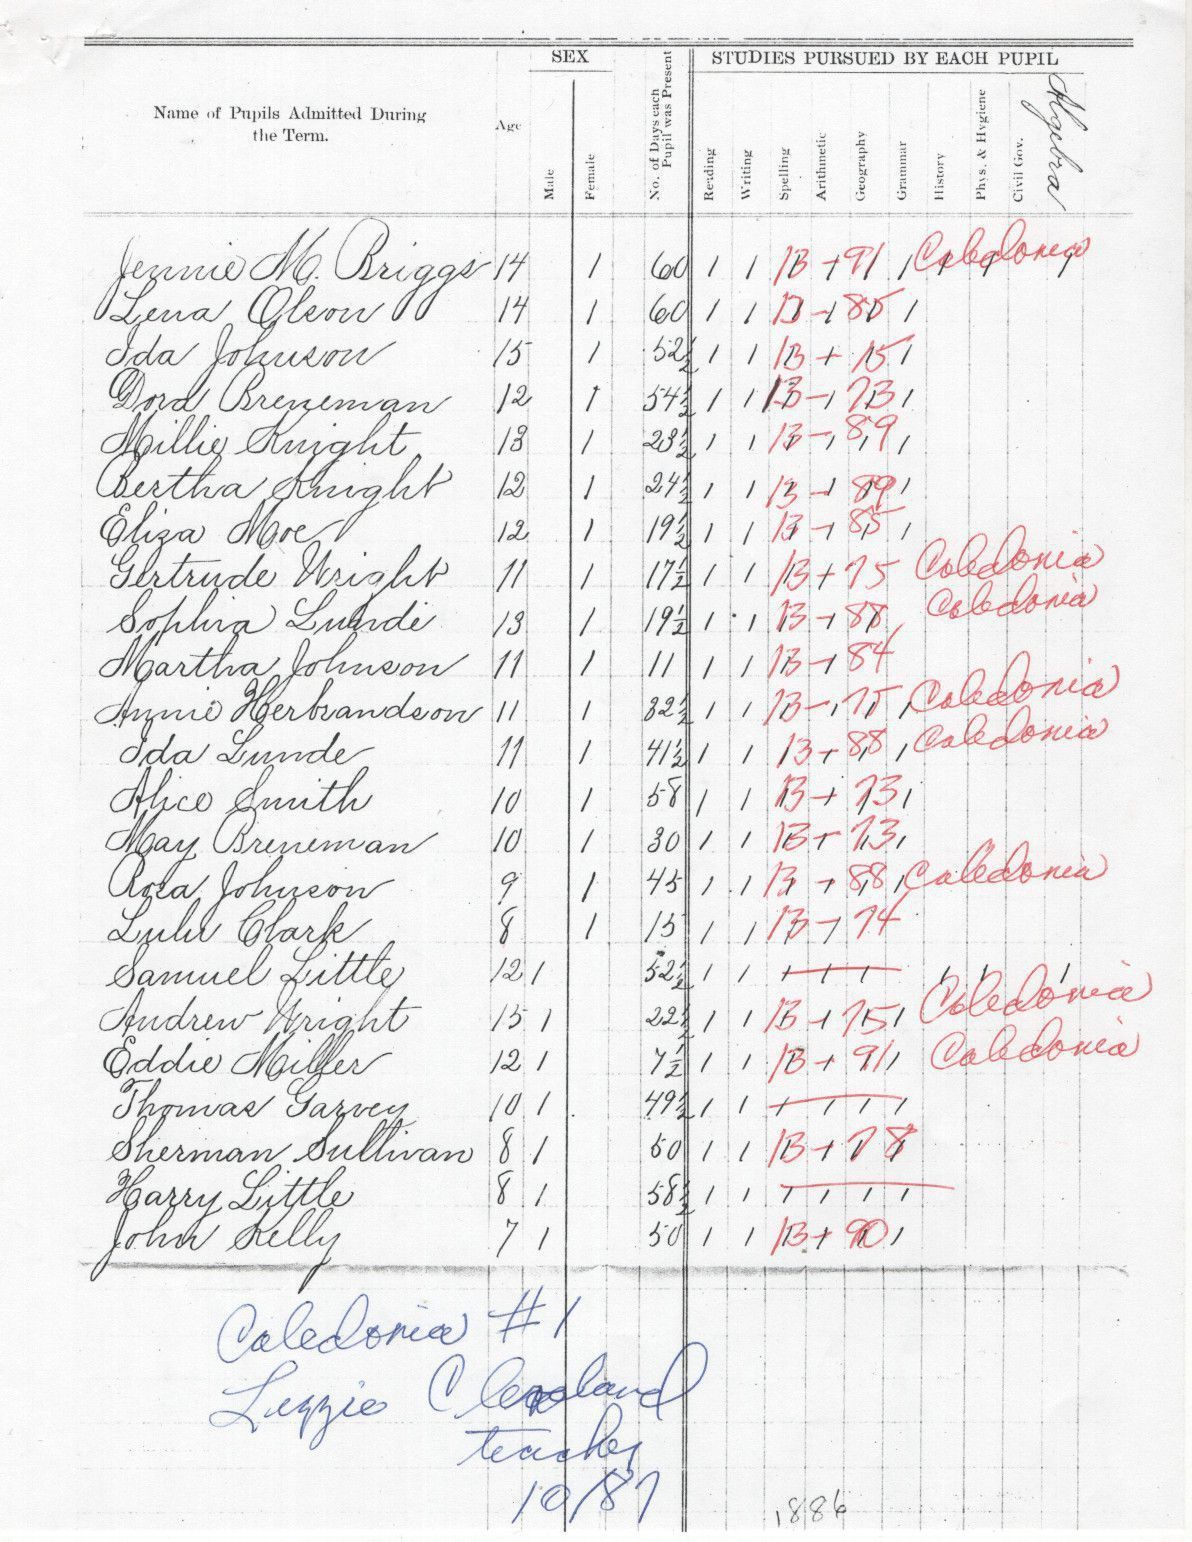 SEX
STUDIES PURSUED BY EACH PUPIL
Name of Pupils Admitted During
the Term.
Age
Male
Female
No. of Days each
Pupil was Present
Reading
Writing
Spelling
Arithmetic
Geography
Grammar
History
Phys. & Hygiene
Civil Gov.
Algebra
Jennie M. Briggs 14 1 60 1 1 B + 91 1 Caledonia
Lena Olson 14 1 60 1 1 B - 85 1
Ida Johnson 15 1 52½ 1 1 B + 75 1
Dora Breneman 12 1 54½ 1 1 B - 73 1
Millie Knight 13 1 23½ 1 1 B - 89 1
Bertha Knight 12 1 24½ 1 1 B - 89 1
Eliza Moe 12 1 19½ 1 1 B - 85 1
Gertrude Wright 11 1 17½ 1 1 B + 75 Caledonia
Sophia Lunde 13 1 19½ 1 1 B + 88 Caledonia
Martha Johnson 11 1 11 1 1 B - 84
Annie Herbrandson 11 1 32½ 1 1 B - 75 1 Caledonia
Ida Lunde 11 1 41½ 1 1 B + 88 1 Caledonia
Alice Smith 10 1 58 1 1 B + 73 1
May Breneman 10 1 30 1 1 B + 73 1
Rosa Johnson 9 1 45 1 1 B + 88 1 Caledonia
Lulu Clark 8 1 15 1 1 B - 74
Samuel Little 12 1 52½ 1 1 1 1 1 1 1 1
Andrew Wright 15 1 22½ 1 1 B + 75 1 Caledonia
Eddie Miller 12 1 7½ 1 1 B + 91 1 Caledonia
Thomas Garvey 10 1 49½ 1 1 1 1 1 1
Sherman Sullivan 8 1 50 1 1 B + 78
Harry Little 8 1 58½ 1 1 1 1 1 1
John Kelly 7 1 50 1 1 B + 90 1
Caledonia #1
Lizzie Cleveland
teacher
10/87
1886